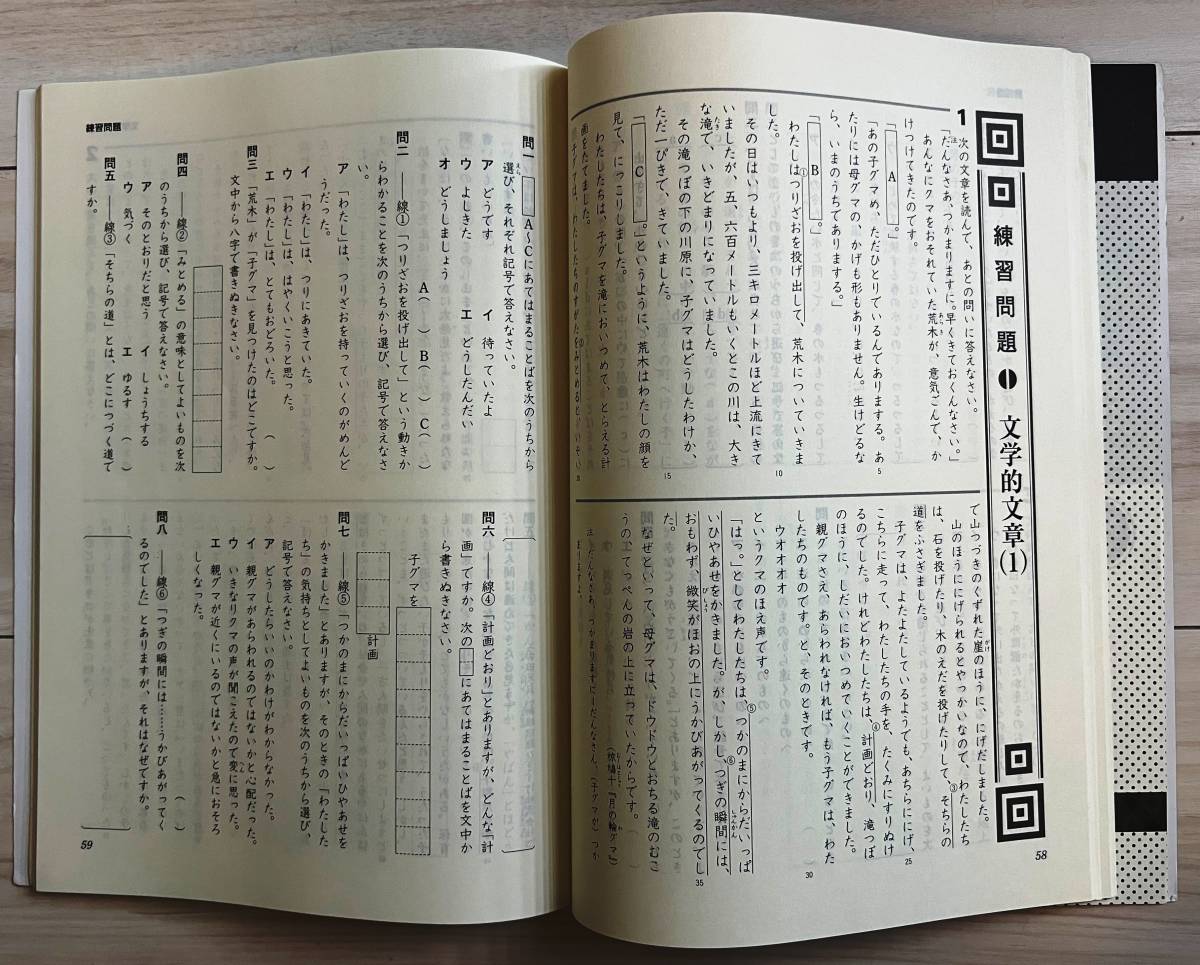 練習問題❶ 文学的文章(1)
1 次の文章を読んで、あとの問いに答えなさい。
「だんなさあ、つかまりますに。早くきておくんなさい。」
注
あんなにクマをおそれていた荒木が、意気ごんで、か
けつけてきたのです。
「 A 。」
「あの子グマめ、ただひとりでいるんでありまする。あ
5
たりには母グマのかげも形もありません。生けどるな
ら、いまのうちでありまする。」
「 B 。」
わたしはつりざおを投げ出して、荒木についていきま
①
した。
10
その日はいつもより、三キロメートルほど上流にきて
いましたが、五、六百メートルもいくとこの川は、大き
な滝で、いきどまりになっていました。
たき
その滝つぼの下の川原に、子グマはどうしたわけか、
ただ一ぴきで、きていました。
15
「 C 。」というように、荒木はわたしの顔を
見て、にっこりしました。
わたしたちは、子グマを滝においつめて、とらえる計
画をたてました。
子グマは、わたしたちのすがたをみとめると、いそい
で山つづきのくずれた崖のほうに、にげだしました。
がけ
山のほうににげられるとやっかいなので、わたしたち
は、石を投げたり、木のえだを投げたりして、そちらの
③
道をふさぎました。
子グマは、よたよたしているようでも、あちらににげ、
25
こちらに走って、わたしたちの手を、たくみにすりぬけ
るのでした。けれどわたしたちは、計画どおり、滝つぼ
④
のほうに、しだいにおいつめていくことができました。
親グマさえ、あらわれなければ、もう子グマは、わた
したちのものです。と、そのときです。
30
ウオオオオ
というクマのほえ声です。
「はっ。」としてわたしたちは、つかのまにからだいっぱ
⑤
いひやあせをかきました。が、しかし、つぎの瞬間には、
⑥
しゅんかん
おもわず、微笑がほおの上にうかびあがってくるのでし
びしょう
35
た。
なぜといって、母グマは、ドウドウとおちる滝のむこ
うのてっぺんの岩の上に立っていたからです。
(椋鳩十「月の輪グマ」)
むくはとじゅう
わ
注 だんなさあ、つかまりますに=だんなさん、(子グマが)つか
まりますよ。
58
練習問題
問一 A〜Cにあてはまることばを次のうちから
選び、それぞれ記号で答えなさい。
ア どうです イ 待っていたよ
ウ よしきた エ どうしたんだい
オ どうしましょう
A( ) B( ) C( )
問二 ――線①「つりざおを投げ出して」という動きか
らわかることを次のうちから選び、記号で答えなさ
い。
ア 「わたし」は、つりざおを持っていくのがめんど
うだった。
イ 「わたし」は、つりにあきていた。
ウ 「わたし」は、はやくいこうと思った。
エ 「わたし」は、とてもおどろいた。
( )
問三 「荒木」が「子グマ」を見つけたのはどこですか。
文中から八字で書きぬきなさい。
問四 ――線②「みとめる」の意味としてよいものを次
のうちから選び、記号で答えなさい。
ア そのとおりだと思う イ しょうちする
ウ 気づく エ ゆるす ( )
問五 ――線③「そちらの道」とは、どこにつづく道で
すか。
問六 ――線④「計画どおり」とありますが、どんな「計
画」ですか。次の にあてはまることばを文中か
ら書きぬきなさい。
子グマを
計画
問七 ――線⑤「つかのまにからだいっぱいひやあせを
かきました」とありますが、そのときの「わたした
ち」の気持ちとしてよいものを次のうちから選び、
記号で答えなさい。
ア どうしたらいいのかわけがわからなかった。
イ 親グマがあらわれるのではないかと心配だった。
ウ いきなりクマの声が聞こえたので変に思った。
エ 親グマが近くにいるのではないかと急におそろ
しくなった。
( )
問八 ――線⑥「つぎの瞬間には……うかびあがってく
るのでした」とありますが、それはなぜですか。
59